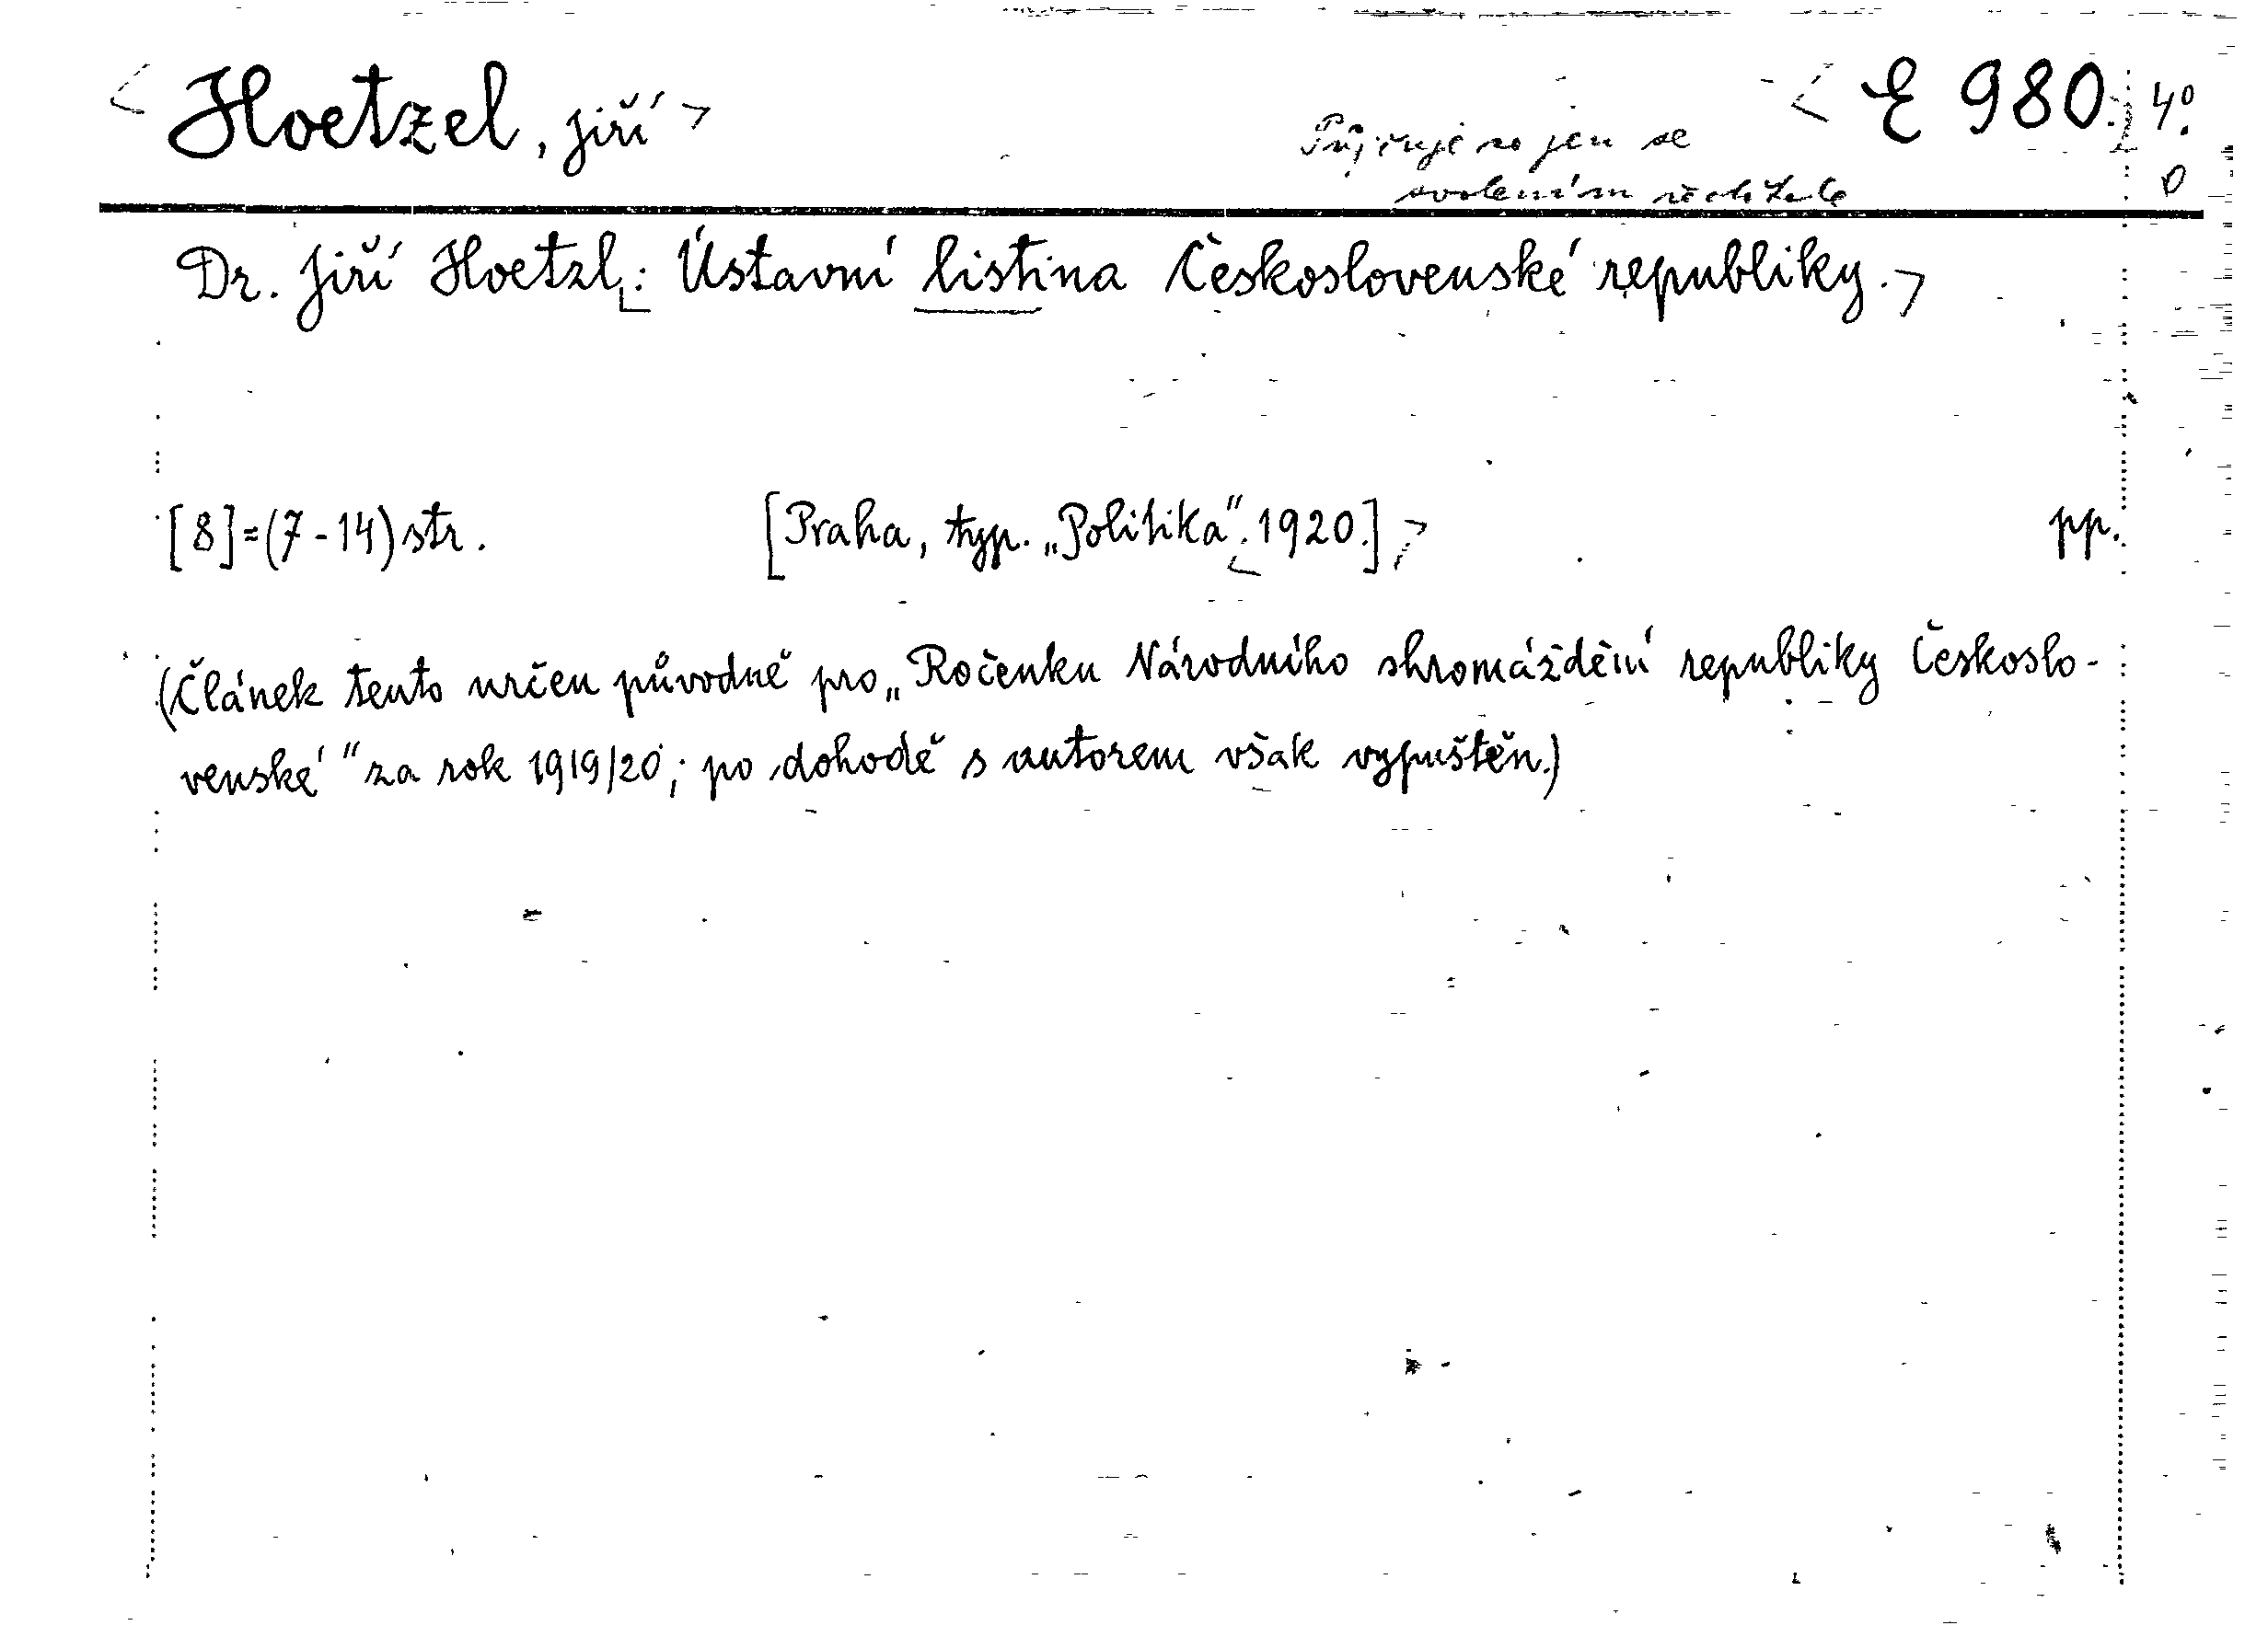 Hoetzel, Jiří E 980. 4°.
Půjčuje se jen se
svolením ředitele 0
Dr. Jiří Hoetzl: Ústavní listina Československé republiky.
[8]=(7-14) str. [Praha, typ. „Politika“. 1920.] pp.
(Článek tento určen původně pro „Ročenku Národního shromáždění republiky Českoslo-
venské“ za rok 1919/20; po dohodě s autorem však vypuštěn.)